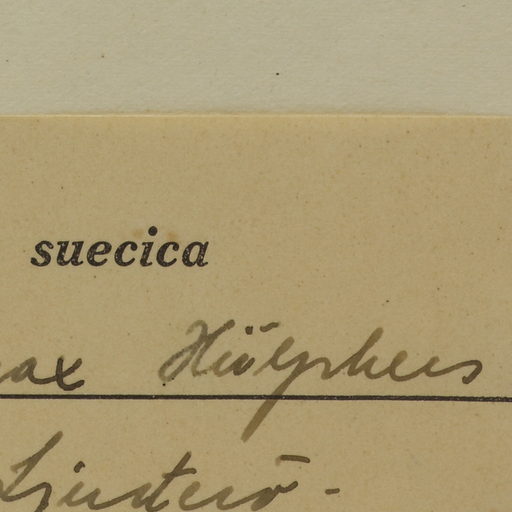 suecica
ax Hülphers
Ljusterö -